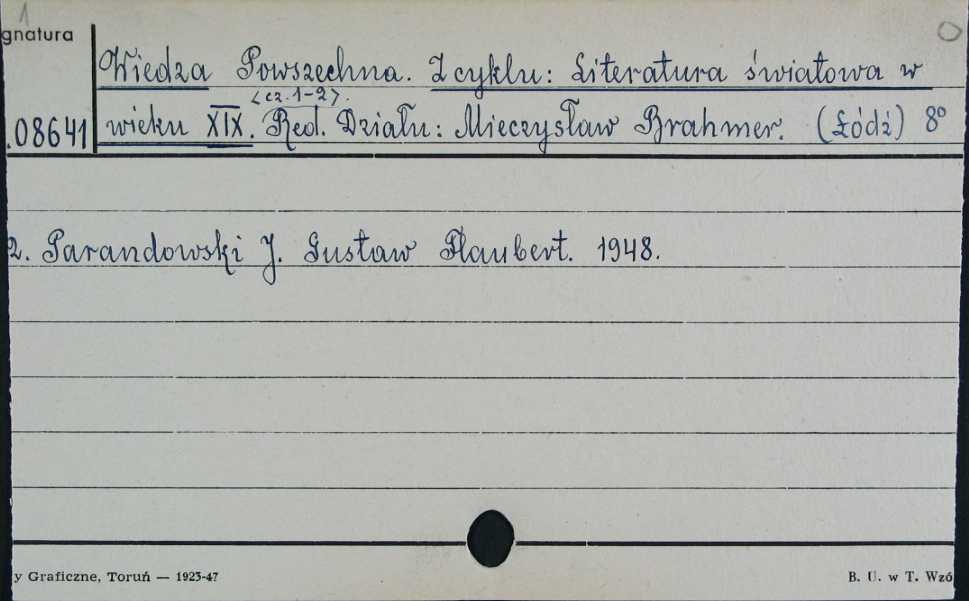 1
gnatura
Wiedza Powszechna. Z cyklu: Literatura światowa w
<cz. 1-2>.
.08641 wieku XIX. Red. Działu: Mieczysław Brahmer. (Łódź) 8°
2. Parandowski J. Gustaw Flaubert. 1948.
y Graficzne, Toruń — 1923-47 B. U. w T. Wzó